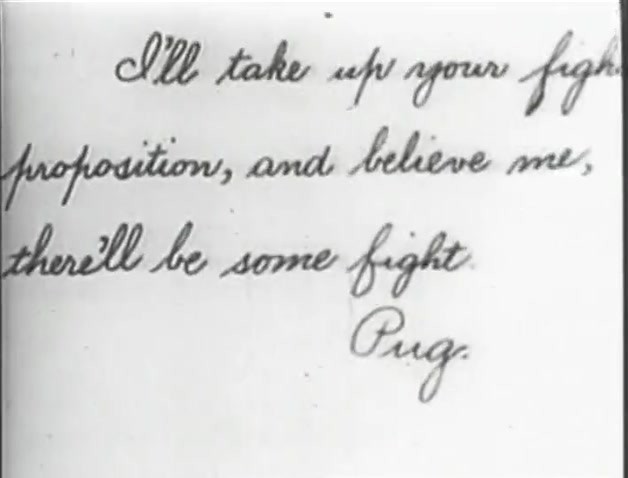 I'll take up your figh
proposition, and believe me,
there'll be some fight.
Pug.